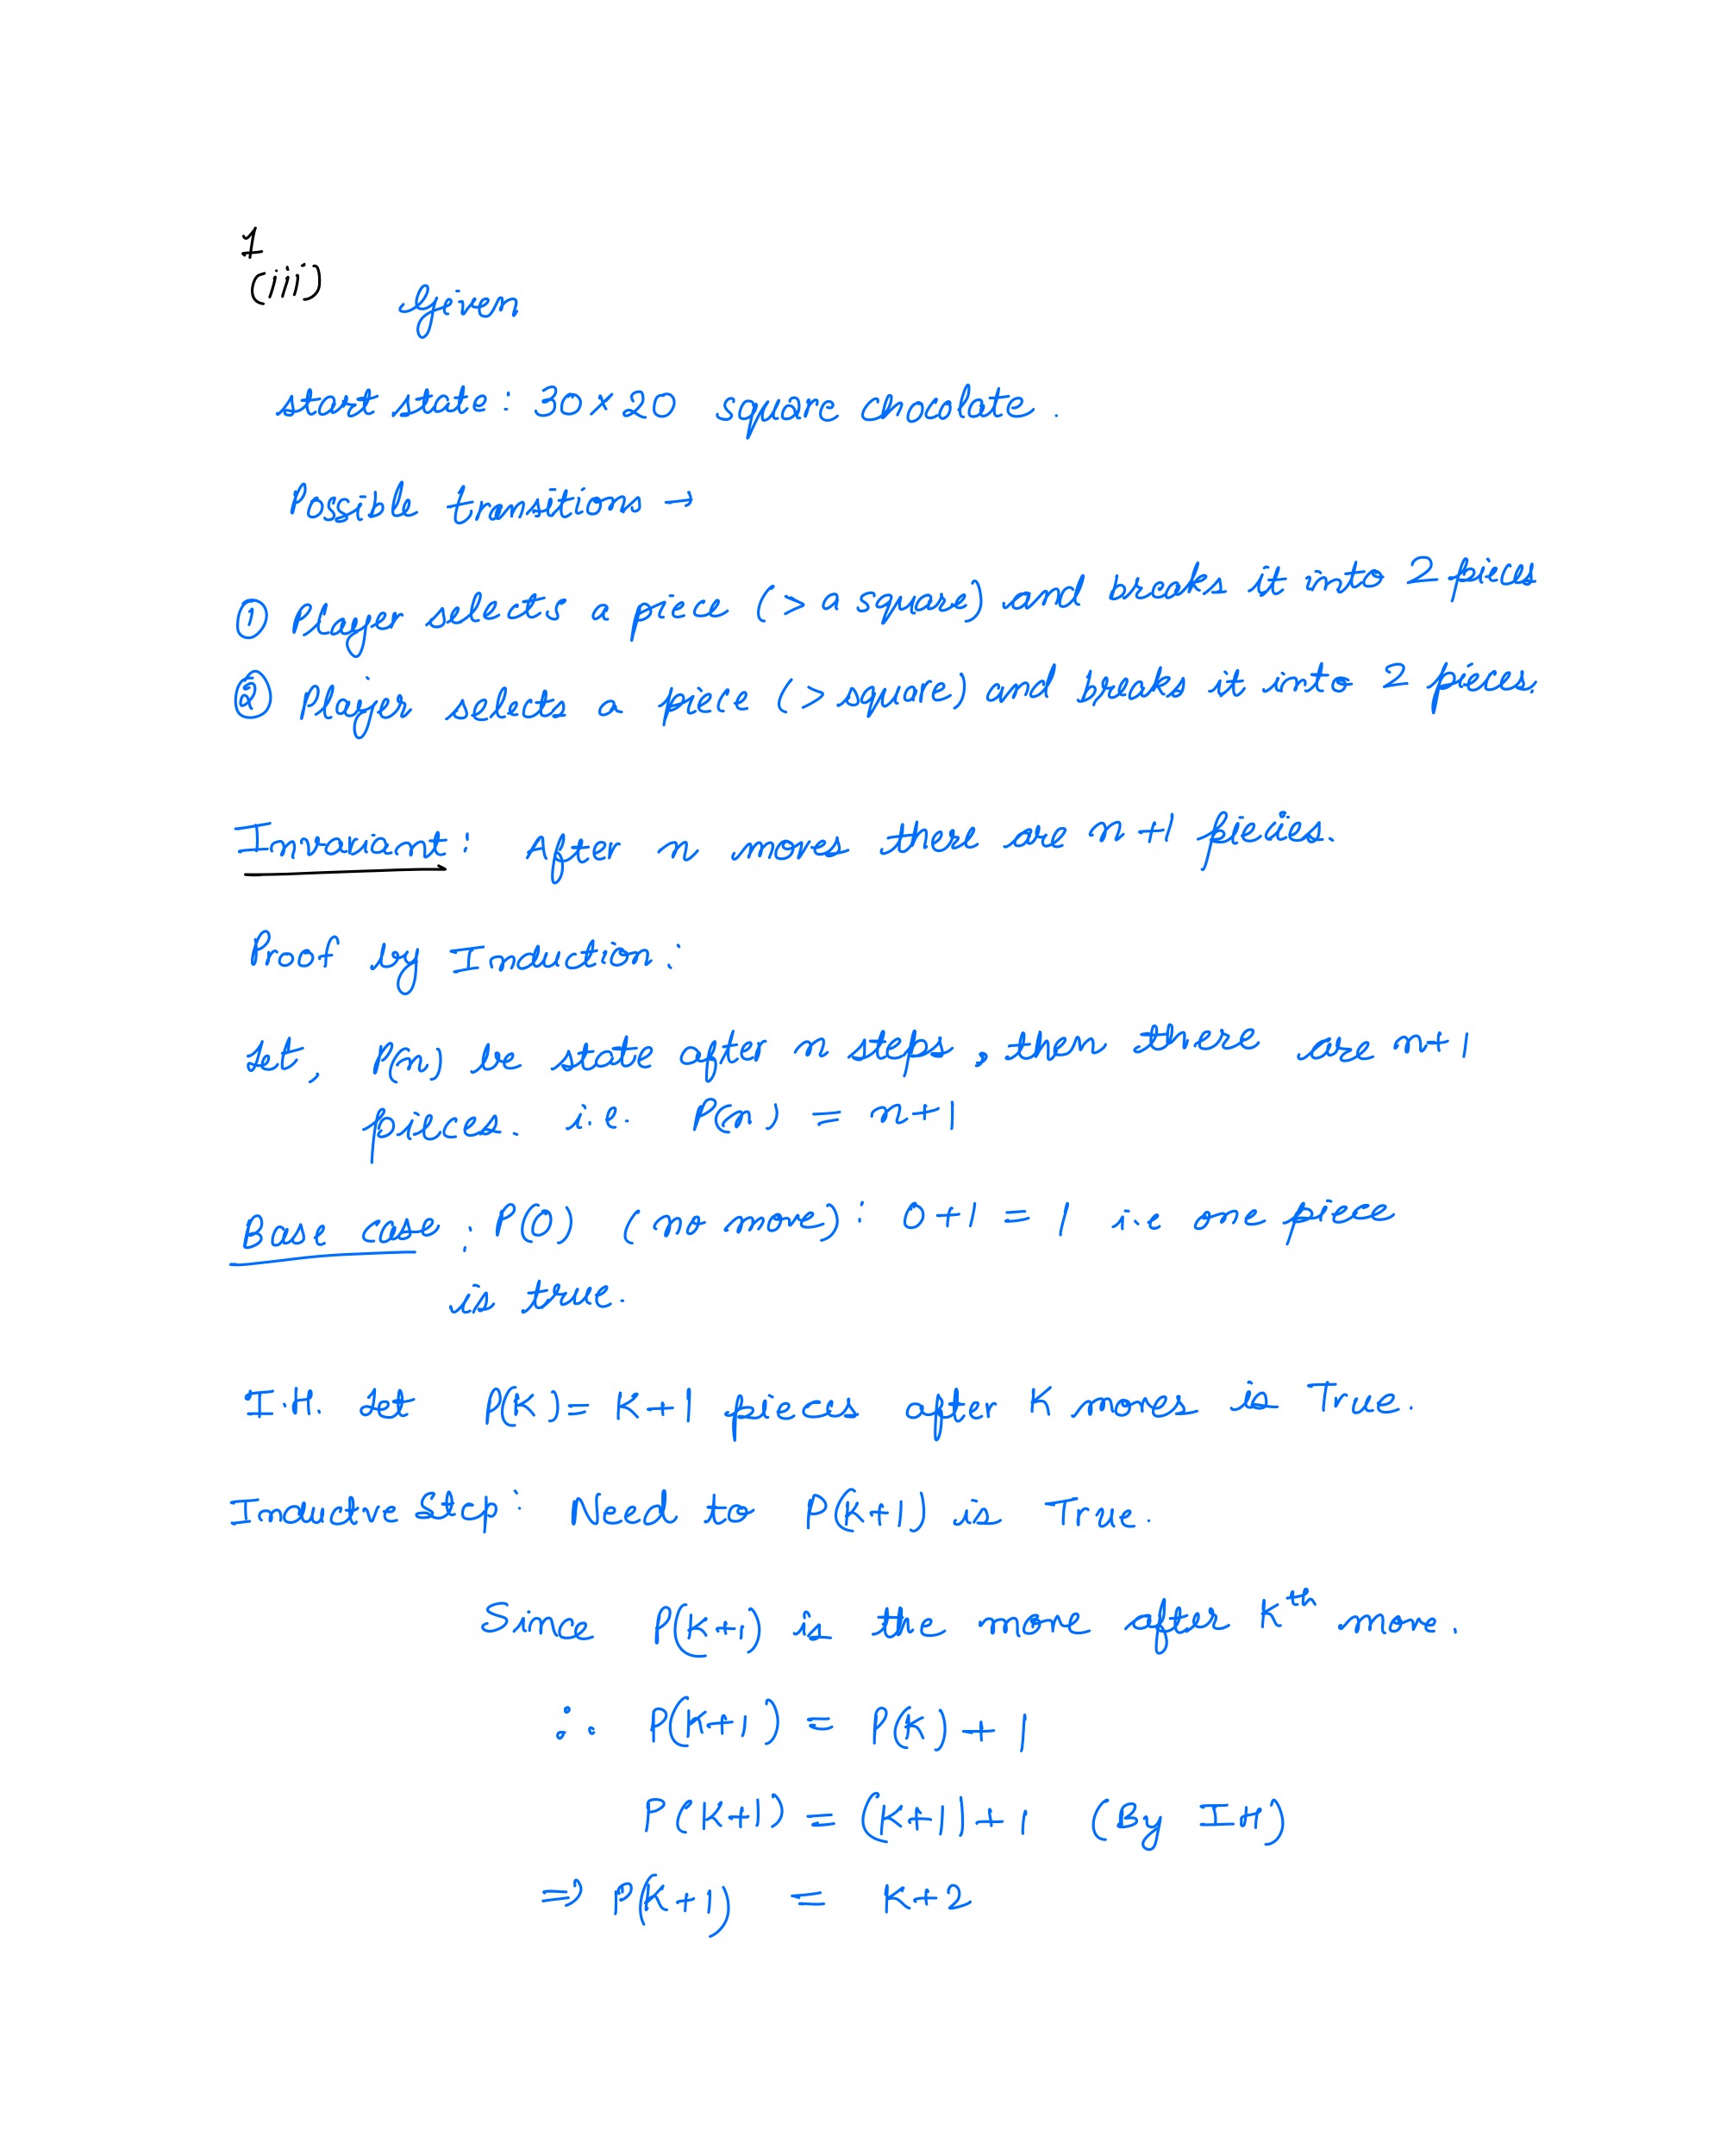 1
(iii)
Given
start state : 30 × 20 square chocolate .
Possible transitions →
① Player selects a piece (> a square) and breaks it into 2 pieces
② Player selects a piece (> square) and breaks it into 2 pieces.
Invariant : After n moves there are n+1 piecies.
Proof by Induction :
Let, P(n) be state after n steps, then there are n+1
pieces. i.e. P(n) = n+1
Base case : P(0) (no move) : 0+1 = 1 i.e one piece
is true.
I.H. Let P(K) = K+1 pieces after K moves is True.
Inductve Step : Need to P(K+1) is True.
Since P(K+1) is the move after Kth move.
∴ P(K+1) = P(K) + 1
P(K+1) = (K+1)+1 (By IH)
⇒ P(K+1) = K+2